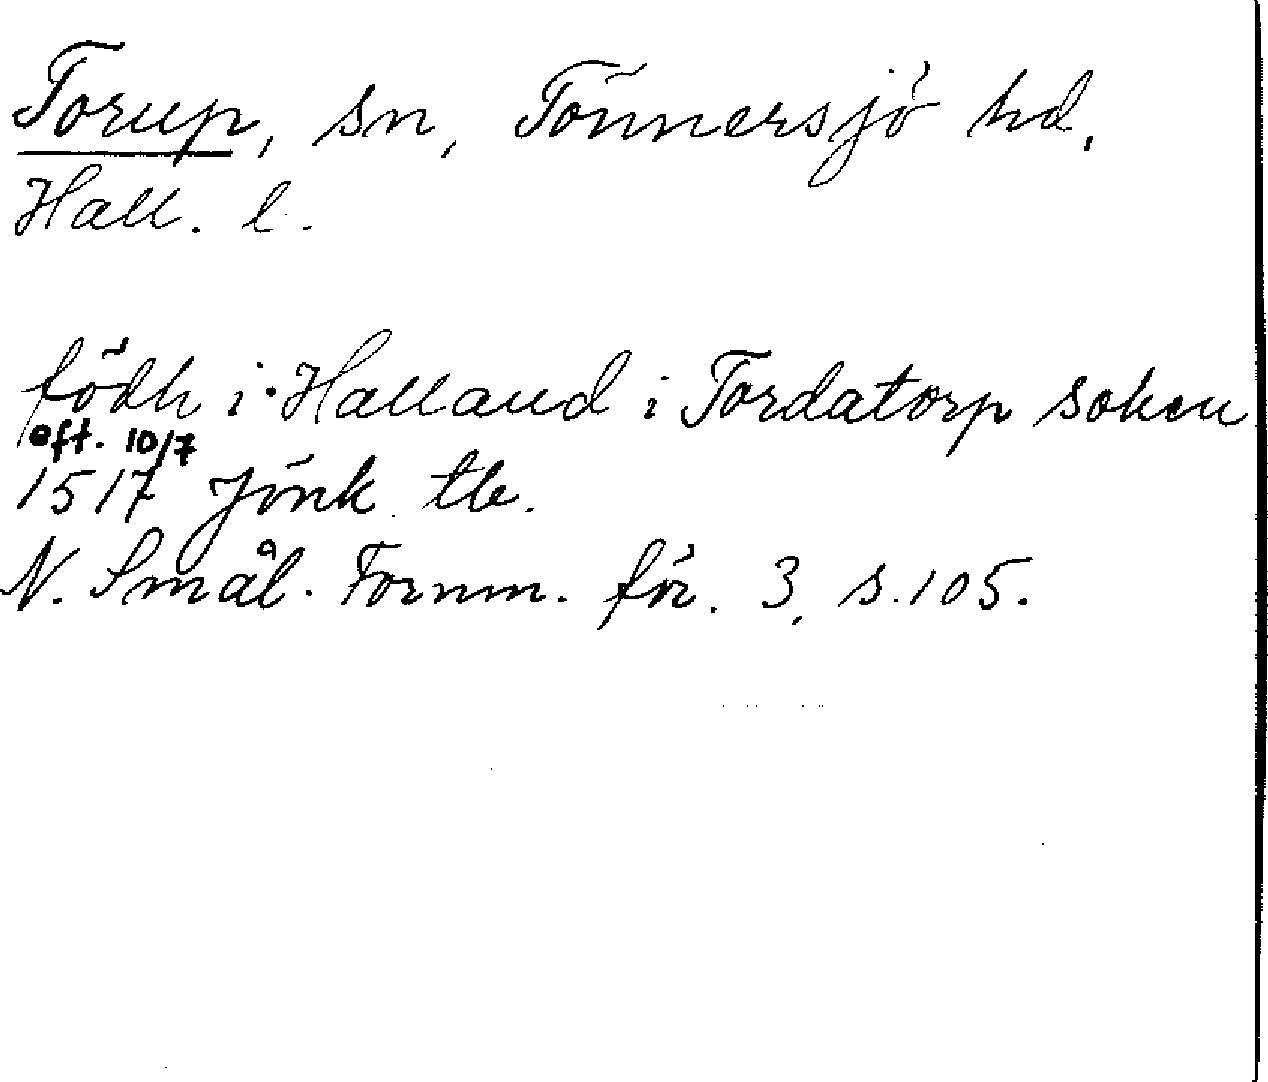 Torup, sn, Tönnersjö hd,
Hall. l.
födh i Halland i Tordatorp soken
eft. 10/7
1517 Jönk. tb.
N. Smål. Fornm.för. 3, s. 105.